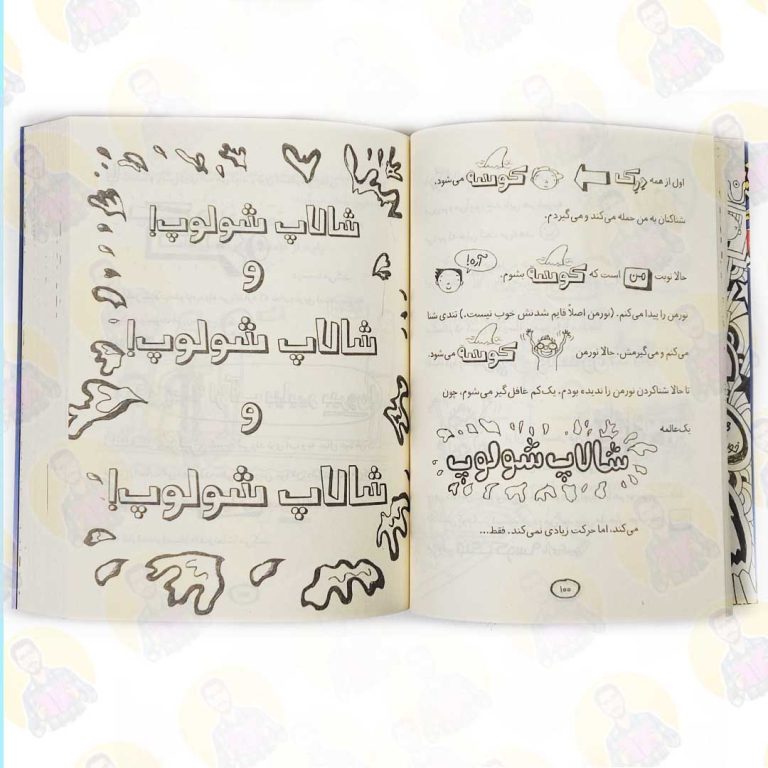 اول از همه دِرِک کوسه می‌شود.
شناکنان به من حمله می‌کند و می‌گیردم.
آره!
حالا نوبت من است که کوسه بشوم.
نورمن را پیدا می‌کنم. (نورمن اصلاً قایم شدنش خوب نیست.) تندی شنا
می‌کنم و می‌گیرمش. حالا نورمن کوسه می‌شود.
تا حالا شناکردن نورمن را ندیده بودم. یک‌کم غافل‌گیر می‌شوم، چون
یک‌عالمه
شالاپ شولوپ
می‌کند، اما حرکت زیادی نمی‌کند. فقط...
۱۰۰
شالاپ شولوپ!
و
شالاپ شولوپ!
و
شالاپ شولوپ!